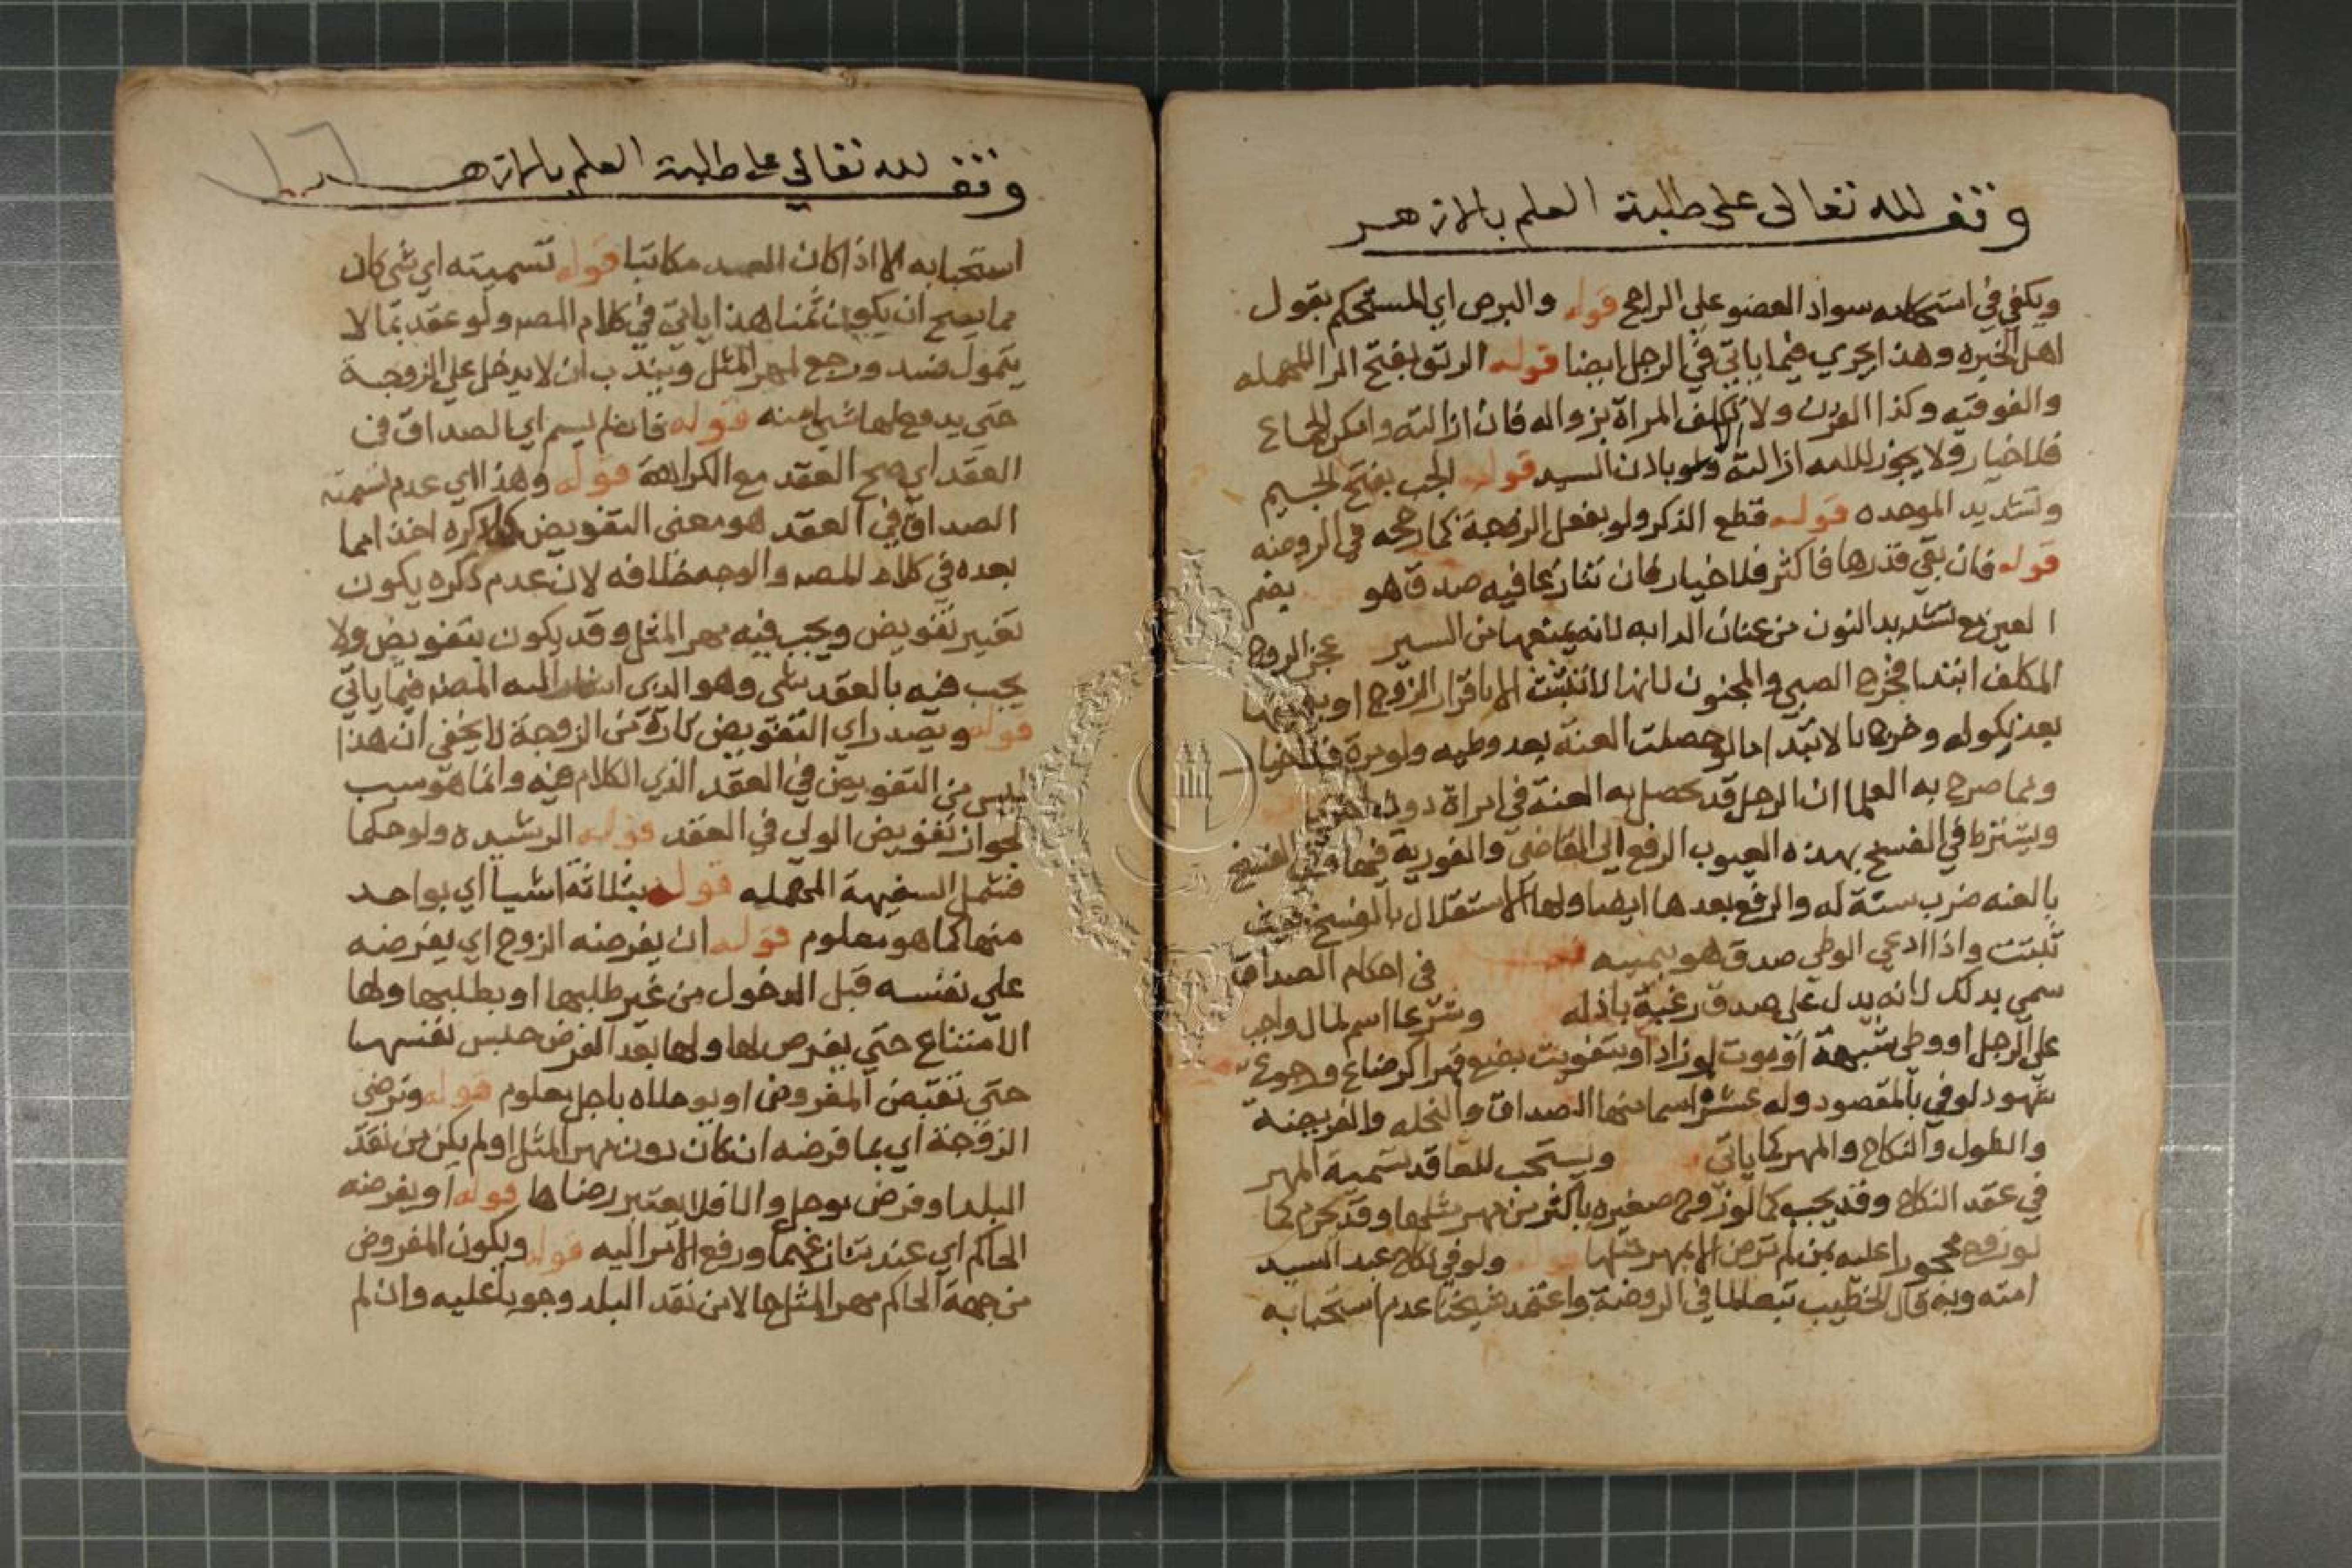 وقف لله تعالى على طلبة العلم بالازهر
ويكفي في استحكامه سواد العضو على الراجح قوله والبرص اي المستحكم بقول
اهل الخبره وهذا يجري فيما ياتي في الرجل ايضا قوله الرتق بفتح الرا المهمله
والفوقيه وكذا القرن ولا تكلف المراة بزواله فان ازالته وامكن الجماع
فلا خيار ولا يجوز للامه ازالته الا ولو باذن السيد قوله الجب بفتح الجيم
وتشديد الموحده قوله قطع الذكر ولو بفعل الزوجة كما رجحه في الروضه
قوله فان بقي قدرها فاكثر فلا خيار فان تنازعا فيه صدق هو بضم
العين مع تشديد النون من عنان الدابه لانه يمنعها من السير عجز الزوج
المكلف ابتدا فخرج الصبي والمجنون لانها لا تثبت الا باقرار الزوج او بيمينها
بعد نكوله وخرج بالابتدا ما لو حصلت العنة بعد وطيه ولو مرة فلا خيار
ومما صرح به العلما ان الرجل قد تحصل به العنة في امراة دون اخرى
ويشترط في الفسخ بهذه العيوب الرفع الى القاضي والفورية فيها وفي الفسخ
بالعنه ضرب سنة له والرفع بعدها ايضا ولها الاستقلال بالفسخ حيث
ثبتت واذا ادعي الوطي صدق هو بيمينه في احكام الصداق
سمي بذلك لانه يدل على صدق رغبة باذله وشرعا اسم لمال واجب
على الرجل او وطي شبهة او موت لو زاد او بتفويت بضع قهرا كرضاع ورجوع
شهود لوفي بالمقصود وله عشر اسما منها الصداق والنحله والفريضة
والطول والنكاح والمهر كما ياتي ويستحب للعاقد تسمية المهر
في عقد النكاح وقد يجب كما لو زوج صغيره باكثر من مهر مثلها وقد يحرم كما
لو زوج محجورا عليه بمن لم ترض الا بمهر مثلها قوله ولو في نكاح عبد السيد
امته وبه قال الخطيب تبعا لما في الروضة واعتمد شيخنا عدم استحبابه
وقف لله تعالي على طلبة العلم بالازهر
استحبابه الا اذا كان العبد مكاتبا قوله تسميته اي شي كان
مما يصح ان يكون ثمنا هذا ياتي في كلام المصـ ولو عقد بما لا
يتمول فسد ورجع لمهر المثل ويندب ان لا يدخل علي الزوجة
حتي يدفع لها شيا منه قوله فان لم يسم اي الصداق في
العقد اي صح العقد مع الكراهة قوله وهذا اي عدم تسمية
الصداق في العقد هو معنى التفويض ذكره اخذا مما
بعده في كلام المصـ والوجه خلافه لان عدم ذكره يكون
بغير تفويض ويجب فيه مهر المثل وقد يكون بتفويض ولا
يجب فيه بالعقد شي وهو الذي اشار اليه المصـ فيما ياتي
قوله ويصدر اي التفويض تارة من الزوجة لا يخفى ان هذا
ليس من التفويض في العقد الذي الكلام فيه وانما هو سبب
لجواز تفويض الولى في العقد قوله الرشيده ولو حكما
فشمل السفيهة المهمله قوله بثلاثة اشيا اي بواحد
منها كما هو معلوم قوله ان يفرضه الزوج اي يفرضه
علي نفسه قبل الدخول من غير طلبها او بطلبها ولها
الامتناع حتي يفرض لها ولها بعد الفرض حبس نفسها
حتي تقبض المفروض او يوجلاه باجل معلوم قوله وترضى
الزوجة اي بما فرضه ان كان دون مهر المثل او لم يكن من نقد
البلد او فرض موجل والا فلا يعتبر رضاها قوله او يفرضه
الحاكم اي عند تنازعهما ورفع الامر اليه قوله ويكون المفروض
من جهة الحاكم مهر المثل حالا من نقد البلد وجوبا عليه وان لم